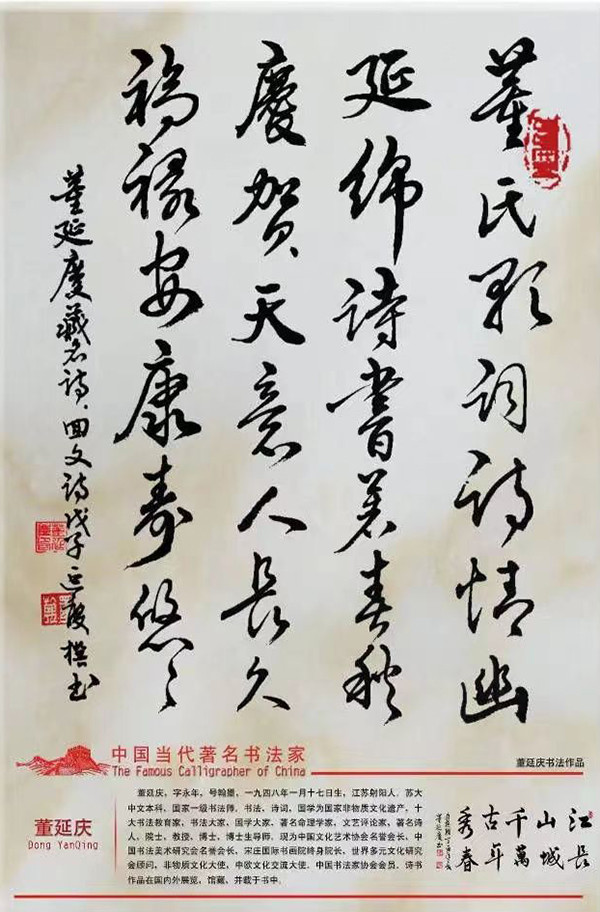 董氏歌词詩情幽
延绵诗書著春秋
慶賀天意人長久
福禄安康寿悠々
董延慶藏名诗、回文诗戊子延慶撰书
中国当代著名书法家
The Famous Calligrapher of China
董延庆书法作品
董延庆
Dong YanQing
董延庆，字永年，号翰墨，一九四八年一月十七日生，江苏射阳人，苏大
中文本科，国家一级书法师，书法，诗词，国学为国家非物质文化遗产，十
大书法教育家、书法大家、国学大家、著名命理学家，文艺评论家，著名诗
人，院士，教授，博士，博士生导师，现为中国文化艺术协会名誉会长，中
国书法美术研究会名誉会长、宋庄国际书画院终身院长，世界多元文化研究
会顾问，非物质文化大使，中欧文化交流大使，中国书法家协会会员。诗书
作品在国内外展览，馆藏，并载于书中。
江山千古秀
長城萬年春